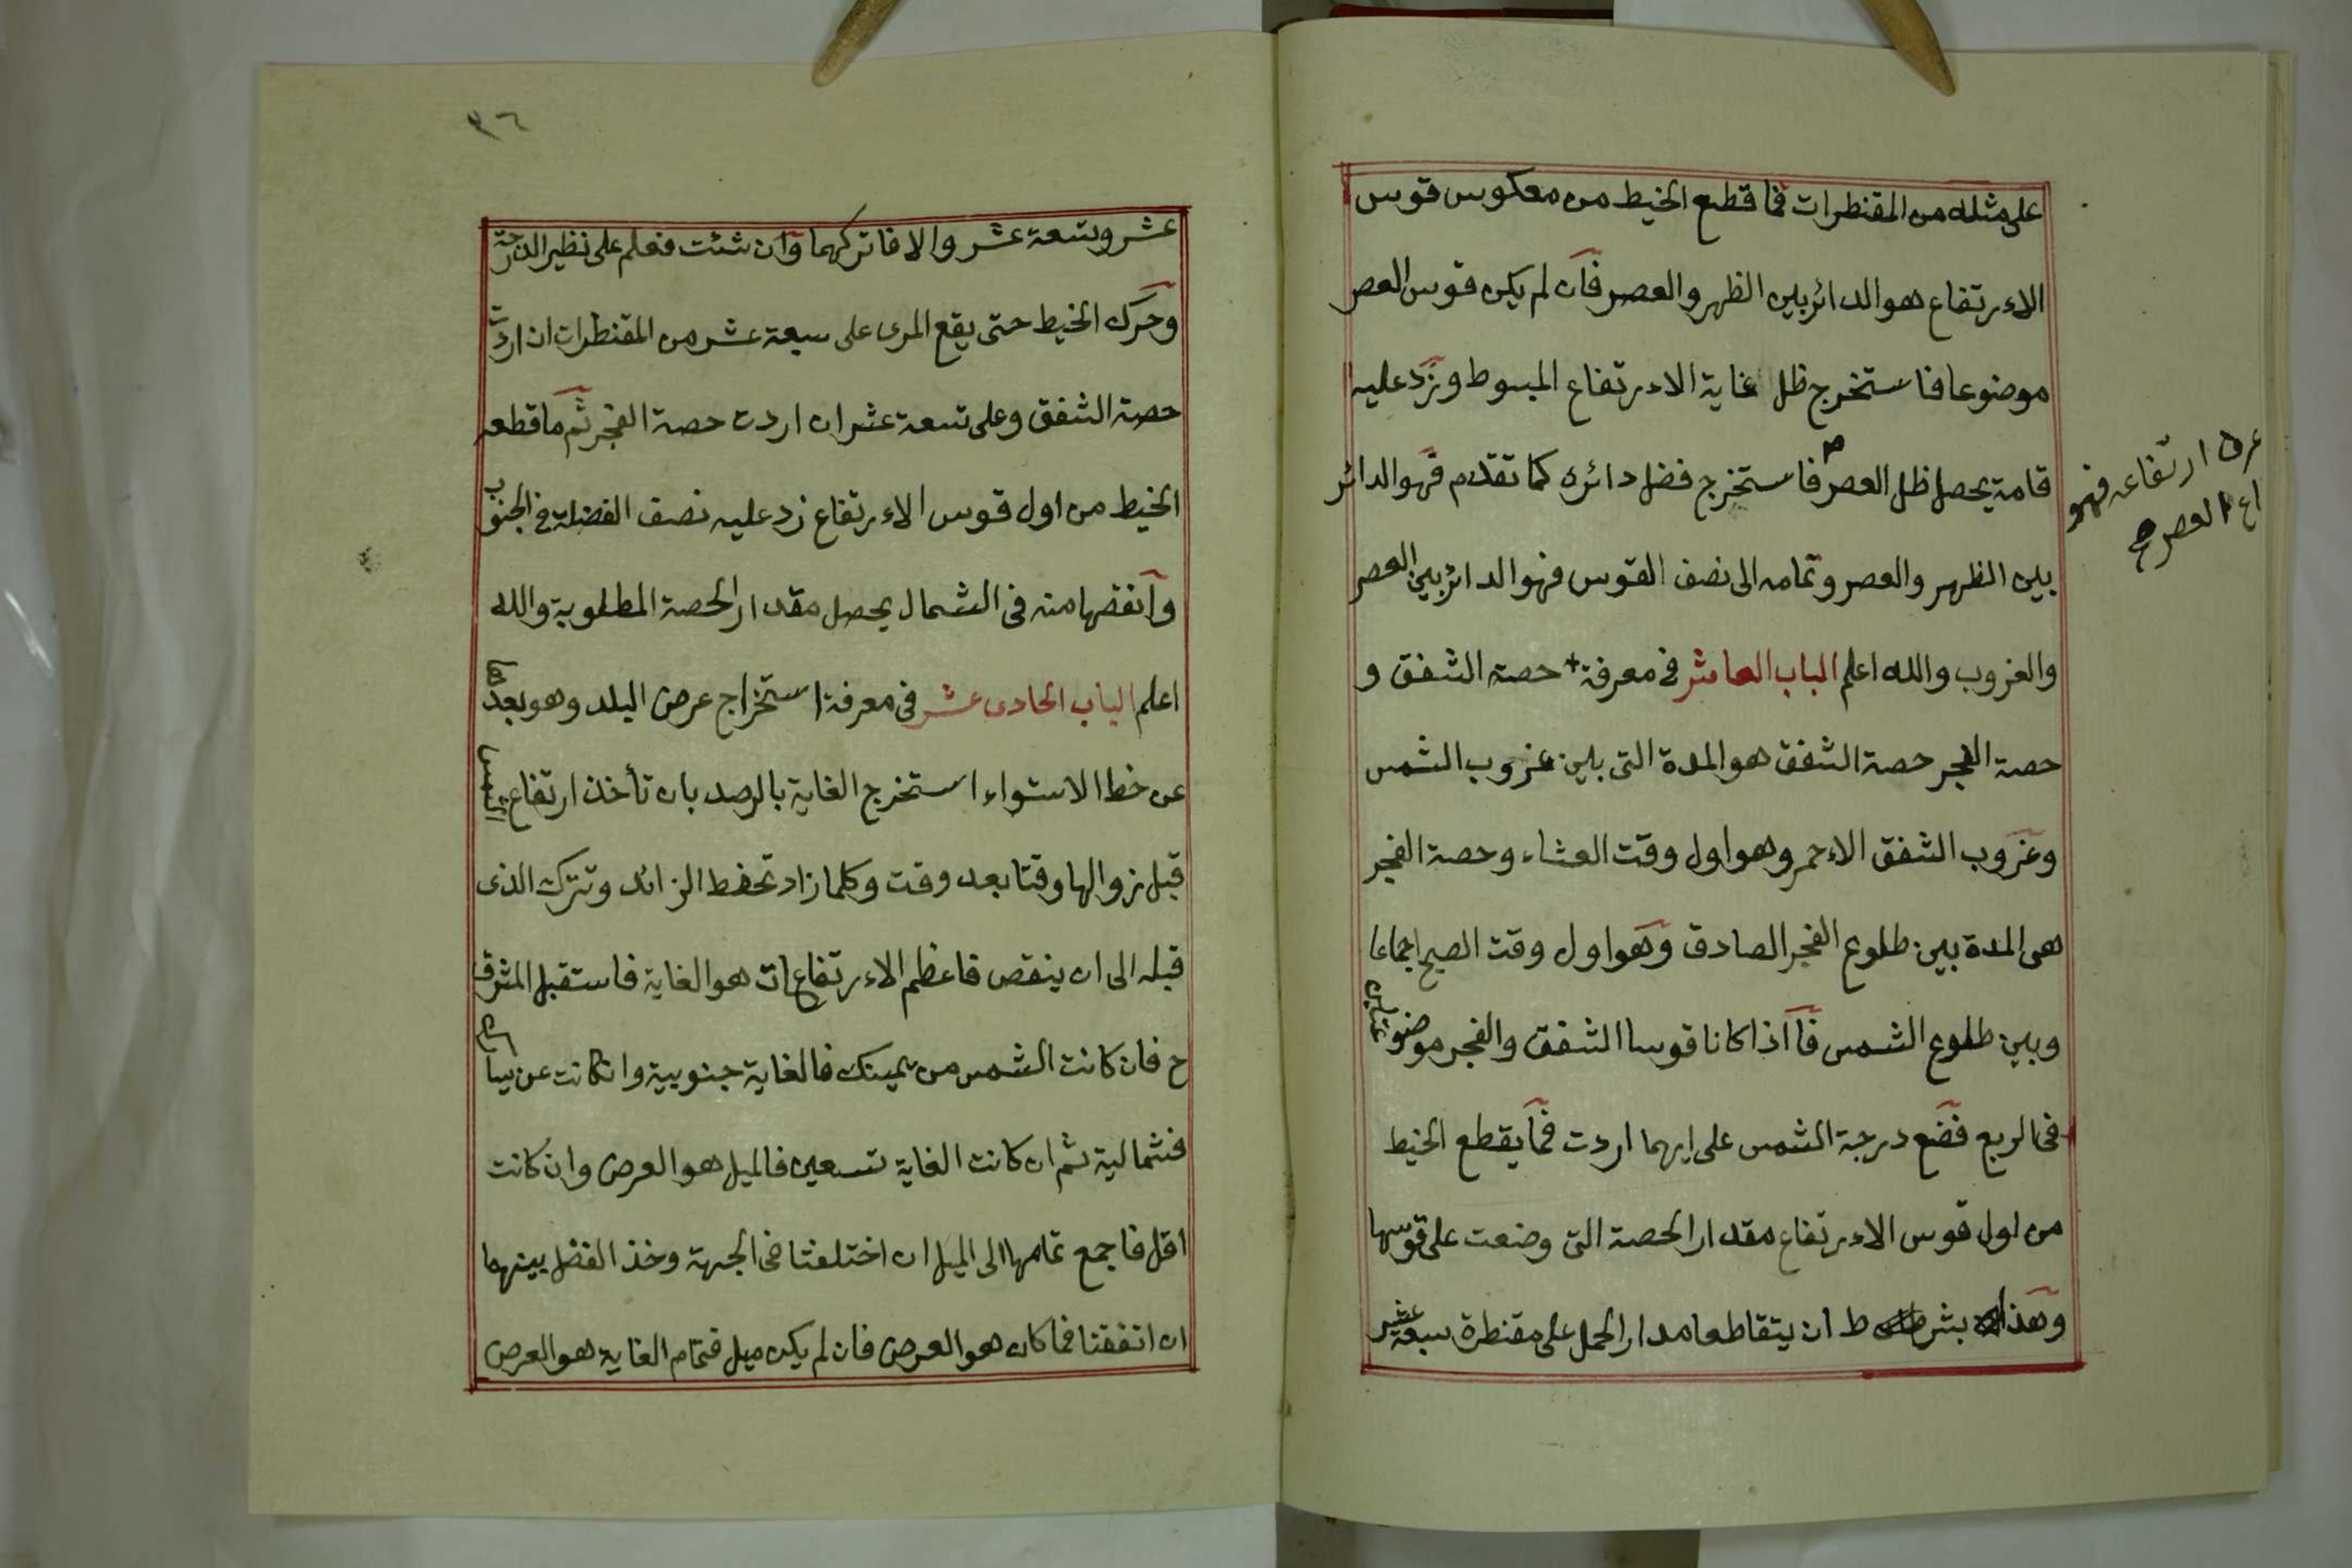 على مثله من المقنطرات فما قطع الخيط من معكوس قوس
الاءرتفاع هو الدائر بين الظهر والعصر فان لم يكن قوس العصر
موضوعا فاستخرج ظل غاية الاءرتفاع المبسوط وزد عليه
قامة يحصل ظل العصر فاستخرج فضل دائره كما تقدم فهو الدائر
ارتفاعه فهو
العصر صح
بين الظهر والعصر وتمامه الى نصف القوس فهو الدائر بين العصر
والغروب والله اعلم الباب العاشر في معرفة حصة الشفق و
حصة الفجر حصة الشفق هو المدة التى بين غروب الشمس
وغروب الشفق الاءحمر وهو اول وقت العشاء وحصة الفجر
هى المدة بين طلوع الفجر الصادق وهو اول وقت الصبح اجماعا
وبين طلوع الشمس فآاذا كانا قوسا الشفق والفجر موضوعين
فى الربع فضع درجة الشمس على ايهما اردت فما يقطع الخيط
من اول قوس الاءرتفاع مقدار الحصة التى وضعت على قوسها
وهذا بشرط ان يتقاطعا مدار الحمل على مقنطرة سبعة عشر
٣٦
عشر وتسعة عشر والا فاتركهما وان شئت فعلم على نظير الدرجة
وحرك الخيط حتى يقع المرى على سبعة عشر من المقنطرات ان اردت
حصة الشفق وعلى تسعة عشر ان اردت حصة الفجر ثم ما قطعه
الخيط من اول قوس الاءرتفاع زد عليه نصف الفضلة في الجنوب
وآنقصها منه فى الشمال يحصل مقدار الحصة المطلوبة والله
اعلم الباب الحادى عشر فى معرفة استخراج عرض البلد وهو بعدها
عن خط الاستواء استخرج الغاية بالرصد بان تأخذ ارتفاع الشمس
قبل زوالها وقتا بعد وقت وكلما زاد تحفظ الزائد وتترك الذى
قبله الى ان ينقص فاعظم الاءرتفاعات هو الغاية فاستقبل المشرق
ح فان كانت الشمس من يمينك فالغاية جنوبية وانكانت عن يسارك
فشمالية ثم ان كانت الغاية تسعين فالميل هو العرض وان كانت
اقل فاجمع تمامها الى الميل ان اختلفتا فى الجهة وخذ الفضل بينهما
ان اتفقتا فما كان هو العرض فان لم يكن ميل فتمام الغاية هو العرض